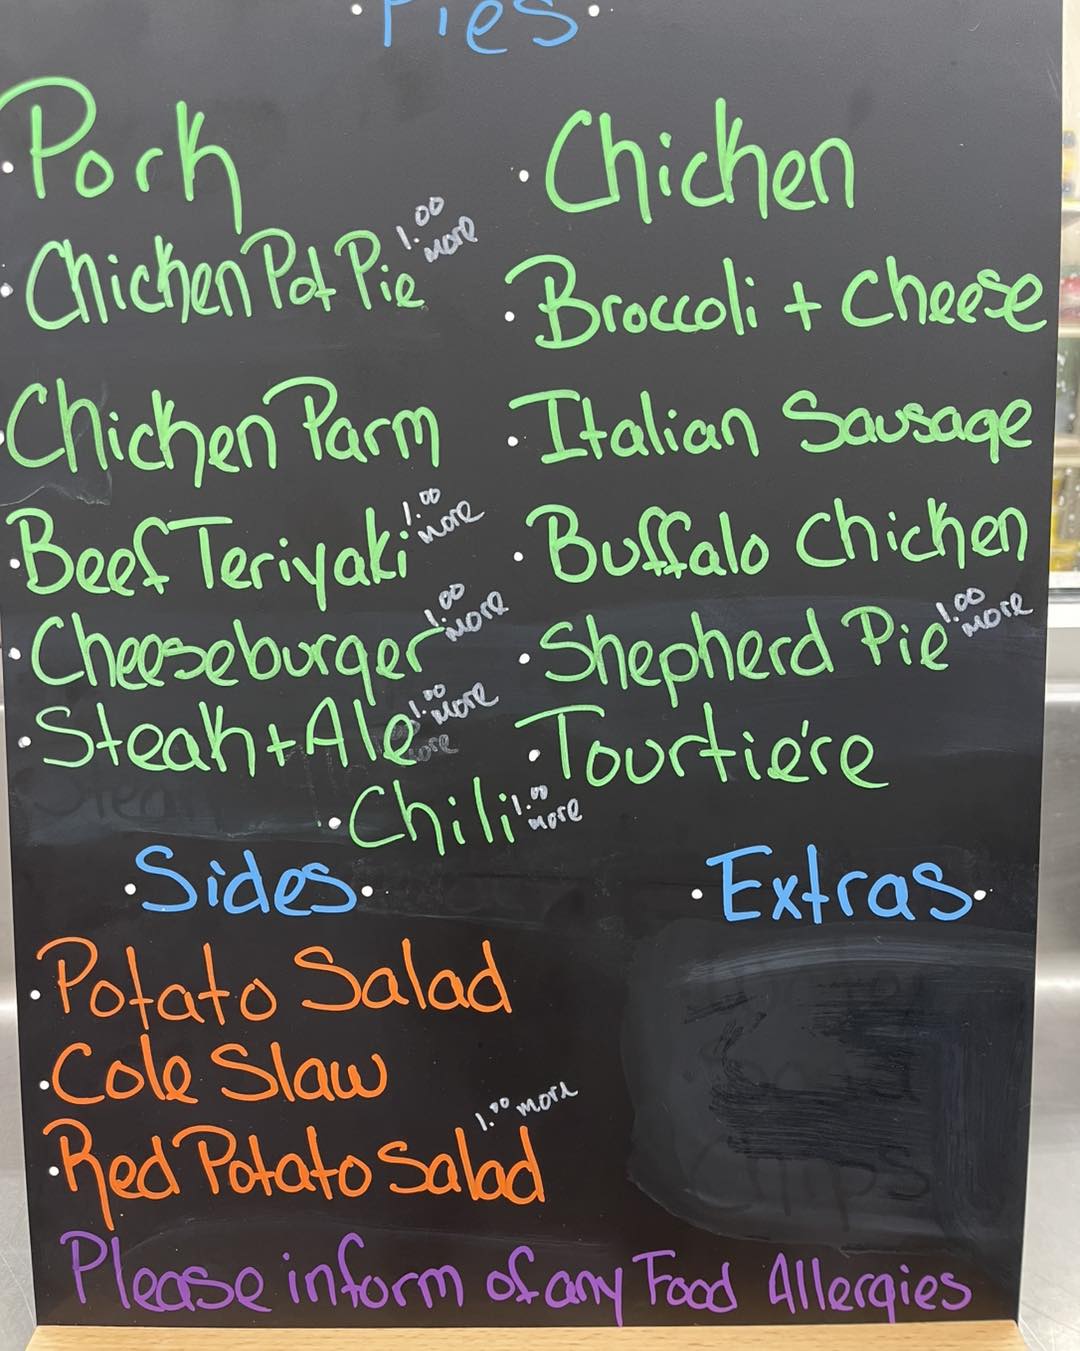 Pies
Pork
Chicken
Chicken Pot Pie 1.00 more
Broccoli + Cheese
Chicken Parm
Italian Sausage
Beef Teriyaki 1.00 more
Buffalo Chicken
Cheeseburger 1.00 more
Shepherd Pie 1.00 more
Steak + Ale 1.00 more
Tourtière
Chili 1.00 more
Sides
Extras
Potato Salad
Cole Slaw
Red Potato Salad 1.00 more
Please inform of any Food Allergies